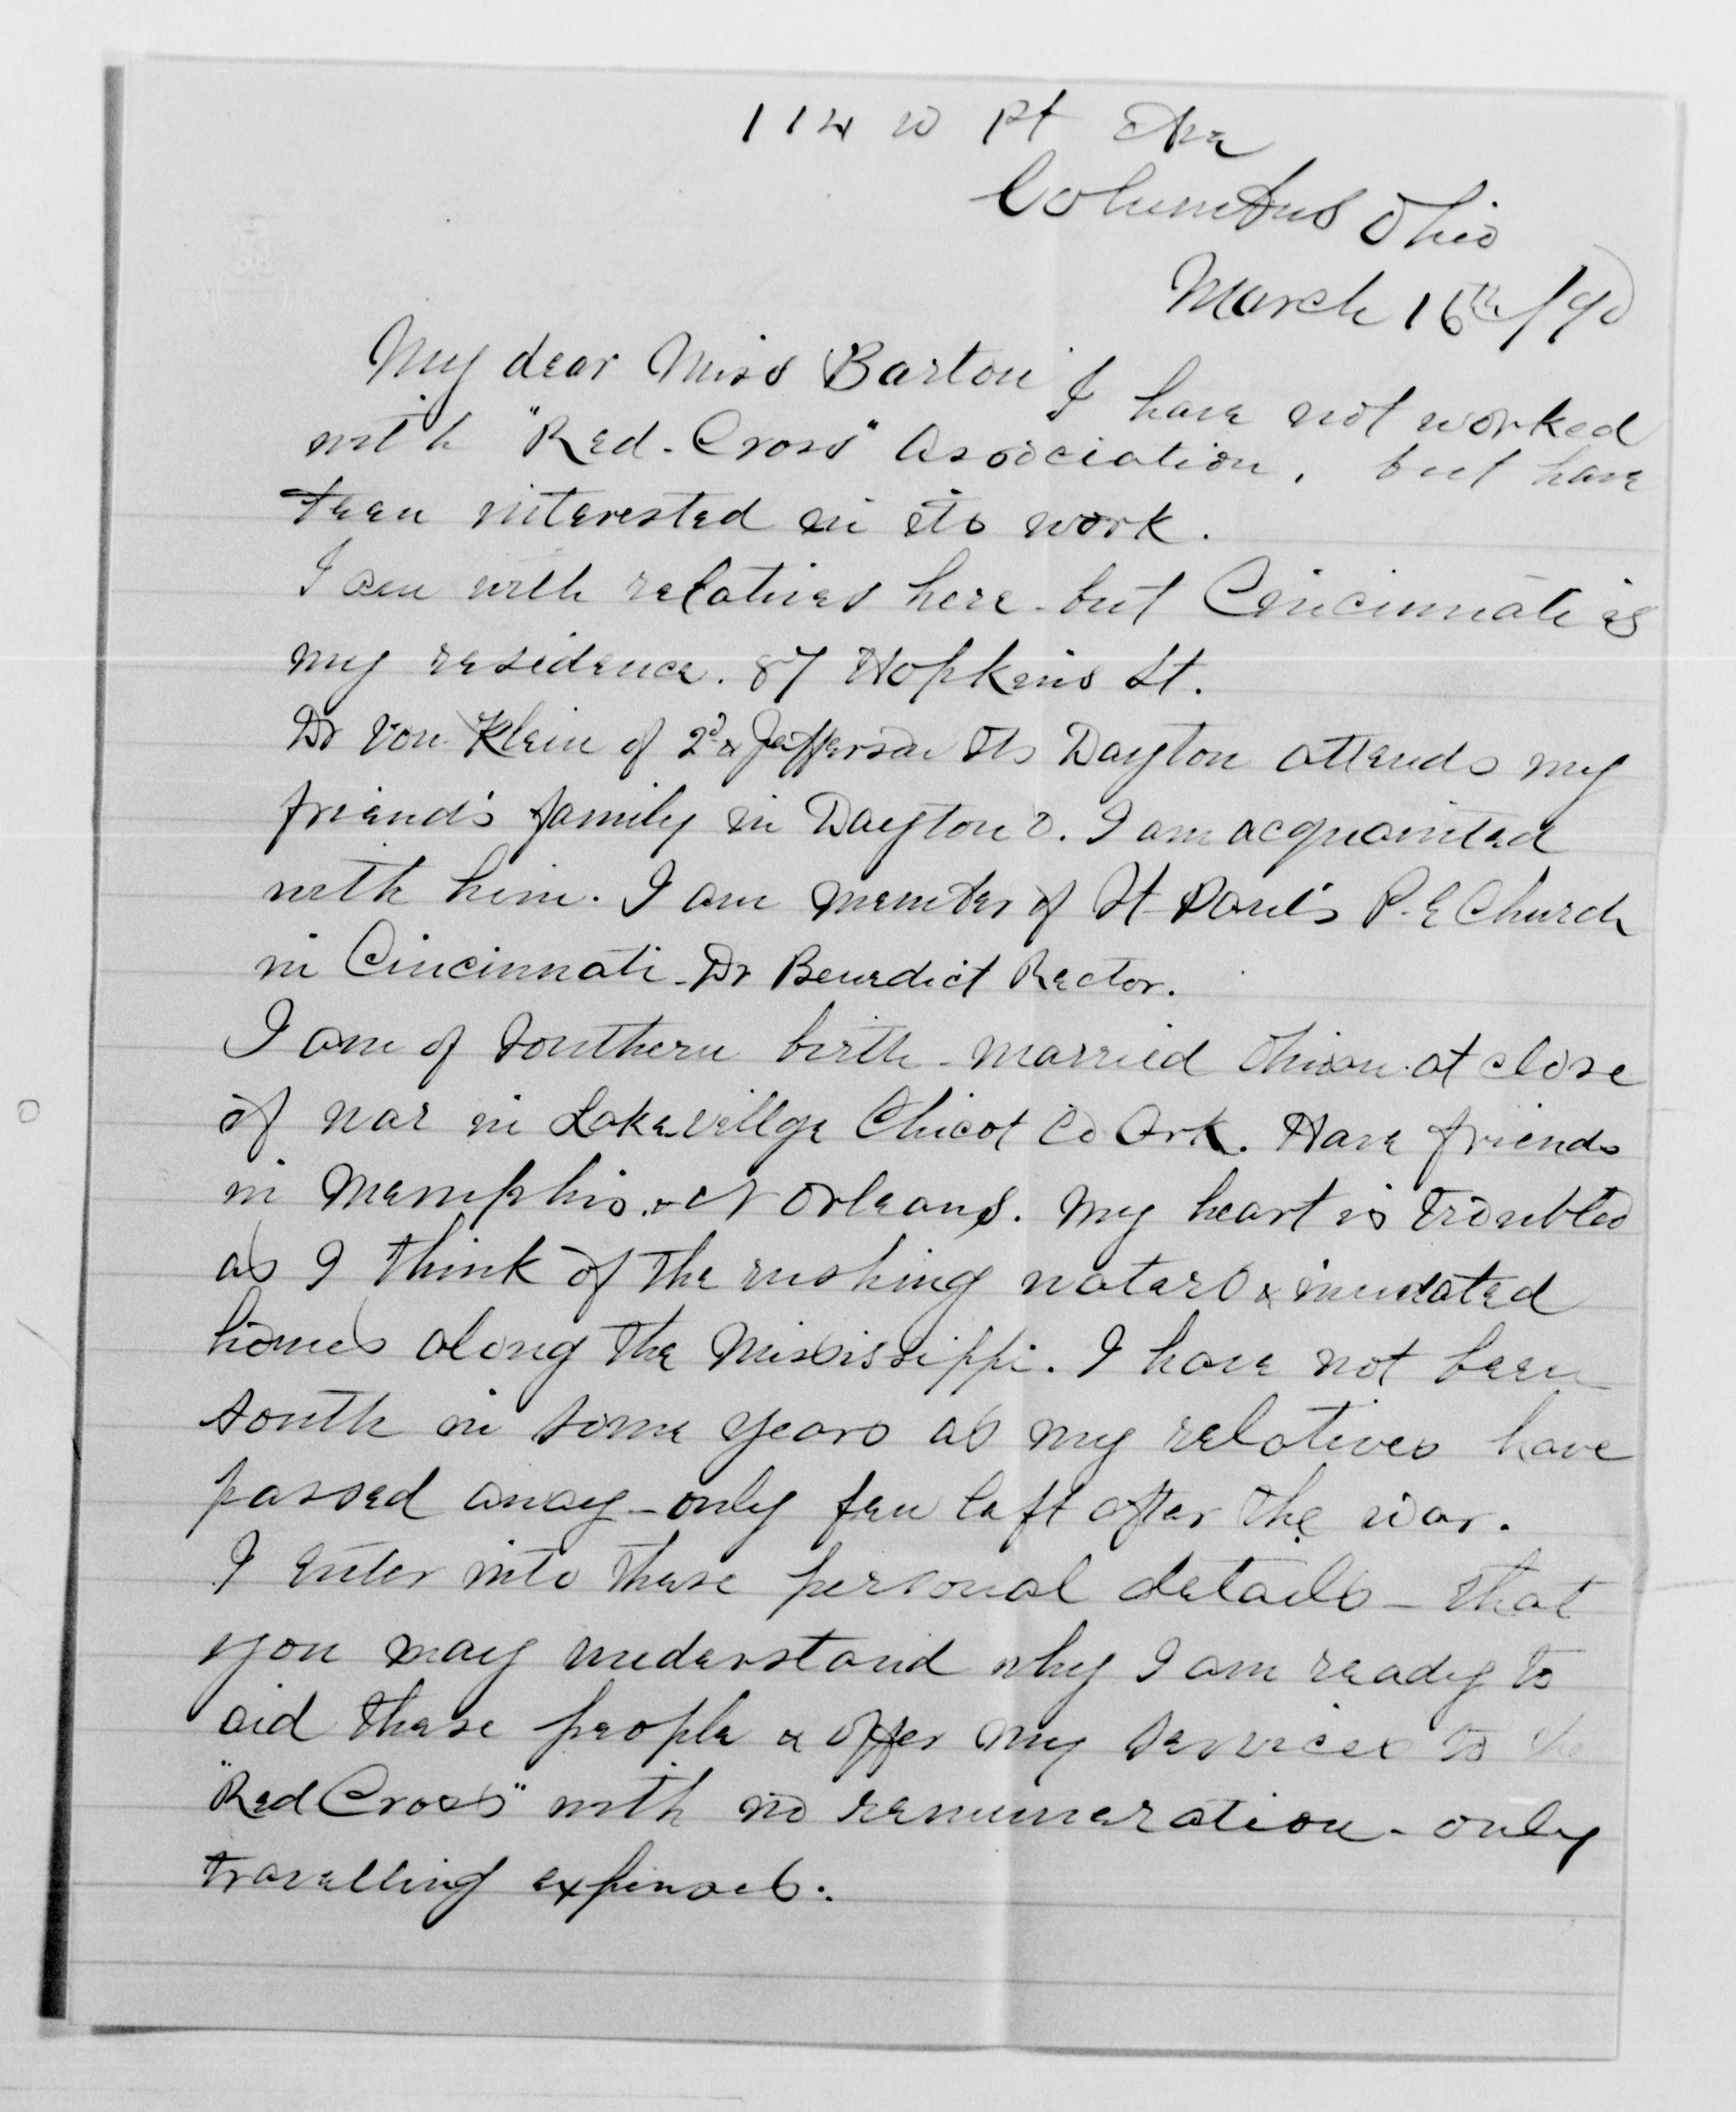 114 W Pt Ave
Columbus Ohio
March 16th/90
My dear Miss Barton I have not worked
with "Red-Cross" Association, but have
been interested in its work.
I am with relatives here - but Cincinnati is
my residence. 87 Hopkins St.
Dr Von Klein of 2d & Jefferson Sts Dayton attends my
friend's family in Dayton O. I am acquainted
with him. I am member of St Paul's P. E Church
in Cincinnati - Dr Benedict Rector.
I am of Southern birth - married Ohioan at close
of war in Lakevillge Chicot Co Ark. Have friends
in Memphis & N Orleans. My heart is troubled
as I think of the rushing waters & inundated
homes along the Mississippi. I have not been
South in some years as my relatives have
passed away - only few left after the war.
I enter into these personal details - that
you may understand why I am ready to
aid these people & offer my services to the
"Red Cross" with no renumeration - only
travelling expenses.